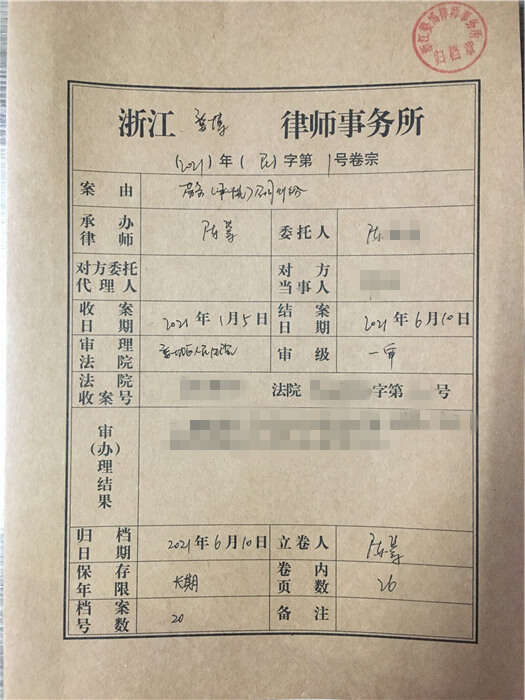 归档章
浙江 律师事务所
(2021)年(民)字第1号卷宗
案由
承办律师 陈 委托人 陈
对方委托代理人 对方当事人
收案日期 2021年1月5日 结案日期 2021年6月10日
审理法院 人民法院 审级 一审
法院收案号 法院 字第 号
审(办)理结果
归档日期 2021年6月10日 立卷人 陈
保存年限 长期 卷内页数 26
档案号数 20 备注